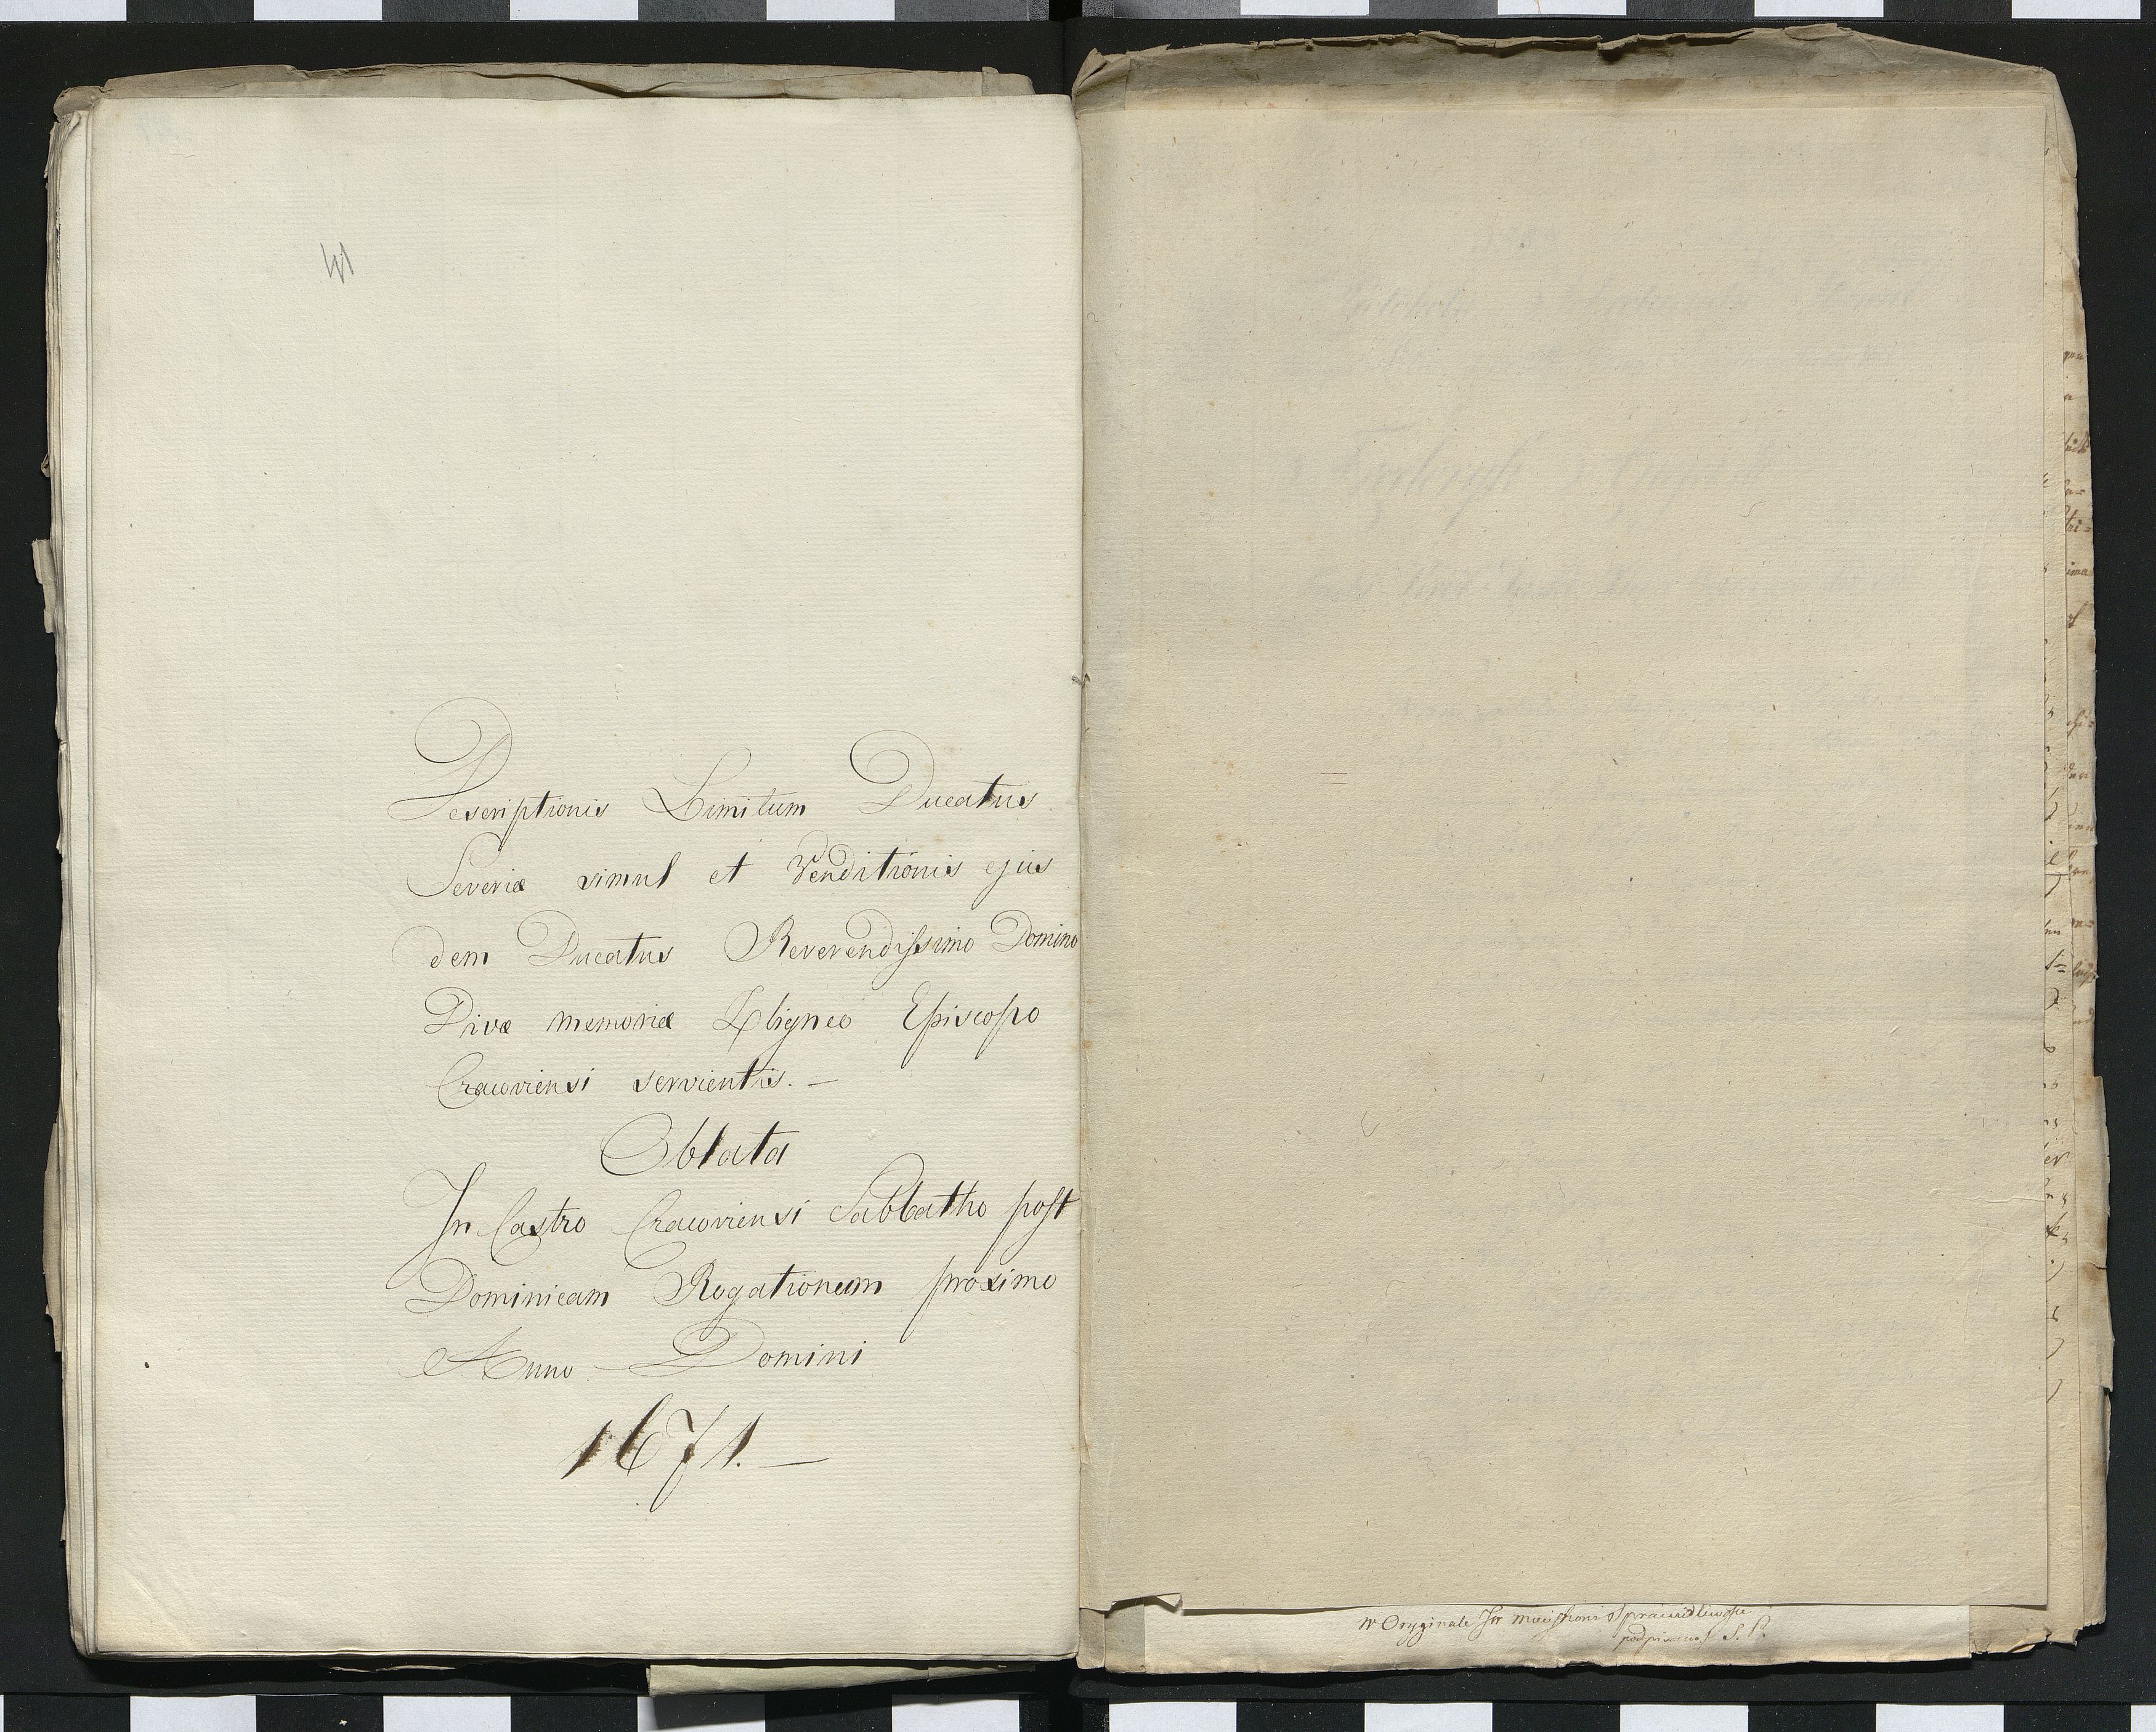 Descriptionis Limitum Ducatus
Severiæ simul et Venditionis ejus
dem Ducatus Reverendissimo Domino
Divæ memoriæ Sbigneo Episcopo
Cracoviensi servientis. —
Oblata
In Castro Cracoviensi Sabbatho post
Dominicam Rogationum proximo
Anno Domini
1671. —
w Oryginale
podpisano S. P.